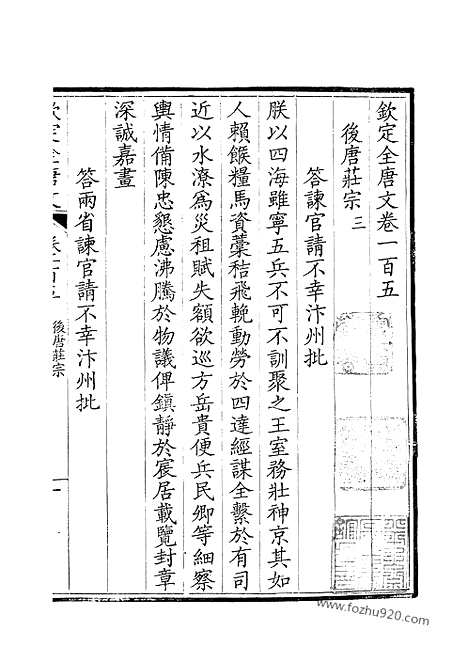 欽定全唐文卷一百五
後唐莊宗三
答諫官請不幸汴州批
朕以四海雖寧五兵不可不訓聚之王室務壯神京其如
人賴餱糧馬資藁秸飛輓動勞於四達經謀全繫於有司
近以水潦為災租賦失額欲巡方岳貴便兵民卿等細察
輿情備陳忠懇慮沸騰於物議俾鎮靜於宸居載覽封章
深誠嘉晝
答兩省諫官請不幸汴州批
欽定全唐文
卷一百五 後唐莊宗
一
www.fozhu920.com